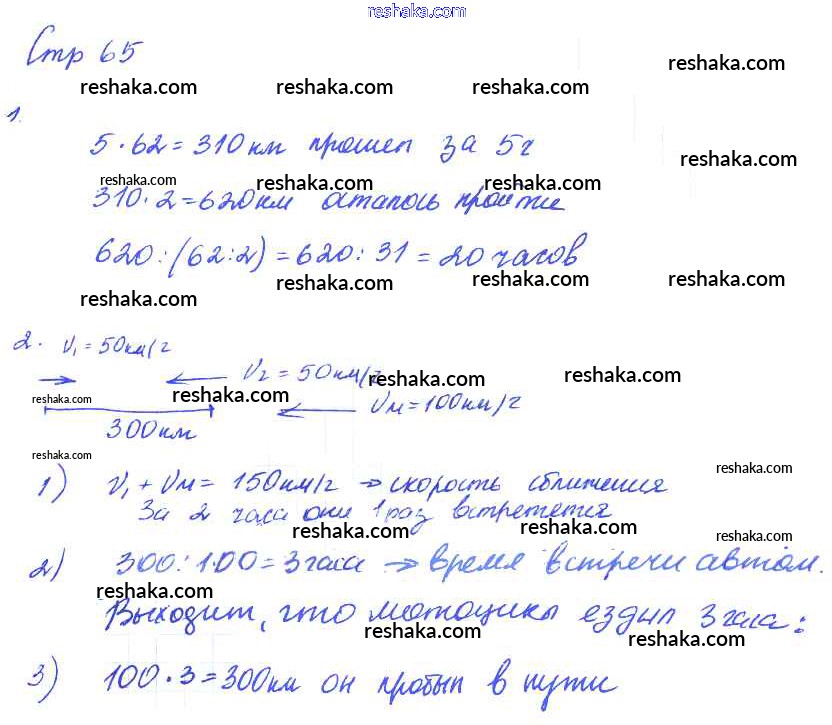 reshaka.com
Стр 65
reshaka.com
reshaka.com reshaka.com reshaka.com
1.
5 · 62 = 310 км прошел за 5ч
reshaka.com
reshaka.com reshaka.com reshaka.com
310 · 2 = 620 км осталось пройти
620 : (62 : 2) = 620 : 31 = 20 часов
reshaka.com reshaka.com reshaka.com reshaka.com
2. V₁ = 50км/ч
V₂ = 50км/ч
reshaka.com reshaka.com
reshaka.com reshaka.com
Vм = 100км/ч
300км
reshaka.com reshaka.com
1) V₁ + Vм = 150км/ч → скорость сближения
За 2 часа они 1 раз встретятся
reshaka.com reshaka.com reshaka.com
2) 300 : 100 = 3 часа → время встречи автом.
reshaka.com
Выходит, что мотоцикл ездил 3 часа:
reshaka.com reshaka.com
3) 100 · 3 = 300км он пробыл в пути